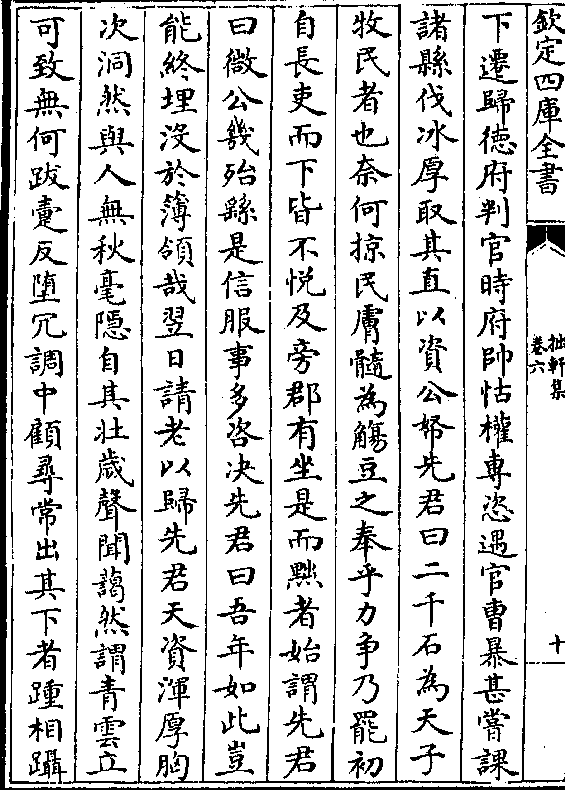 欽定四庫全書
拙軒集
卷六
十
下遷歸徳府判官時府帥怙權専恣遇官曹暴甚嘗課
諸縣伐冰厚取其直以資公帑先君曰二千石為天子
牧民者也奈何掠民膚髓為觴豆之奉乎力争乃罷初
自長吏而下皆不悦及旁郡有坐是而黜者始謂先君
曰微公幾殆繇是信服事多咨决先君曰吾年如此豈
能終埋没於簿領哉翌日請老以歸先君天資渾厚胸
次洞然與人無秋毫隠自其壮歳聲聞藹然謂青雲立
可致無何跋疐反堕冗調中顧尋常出其下者踵相躡